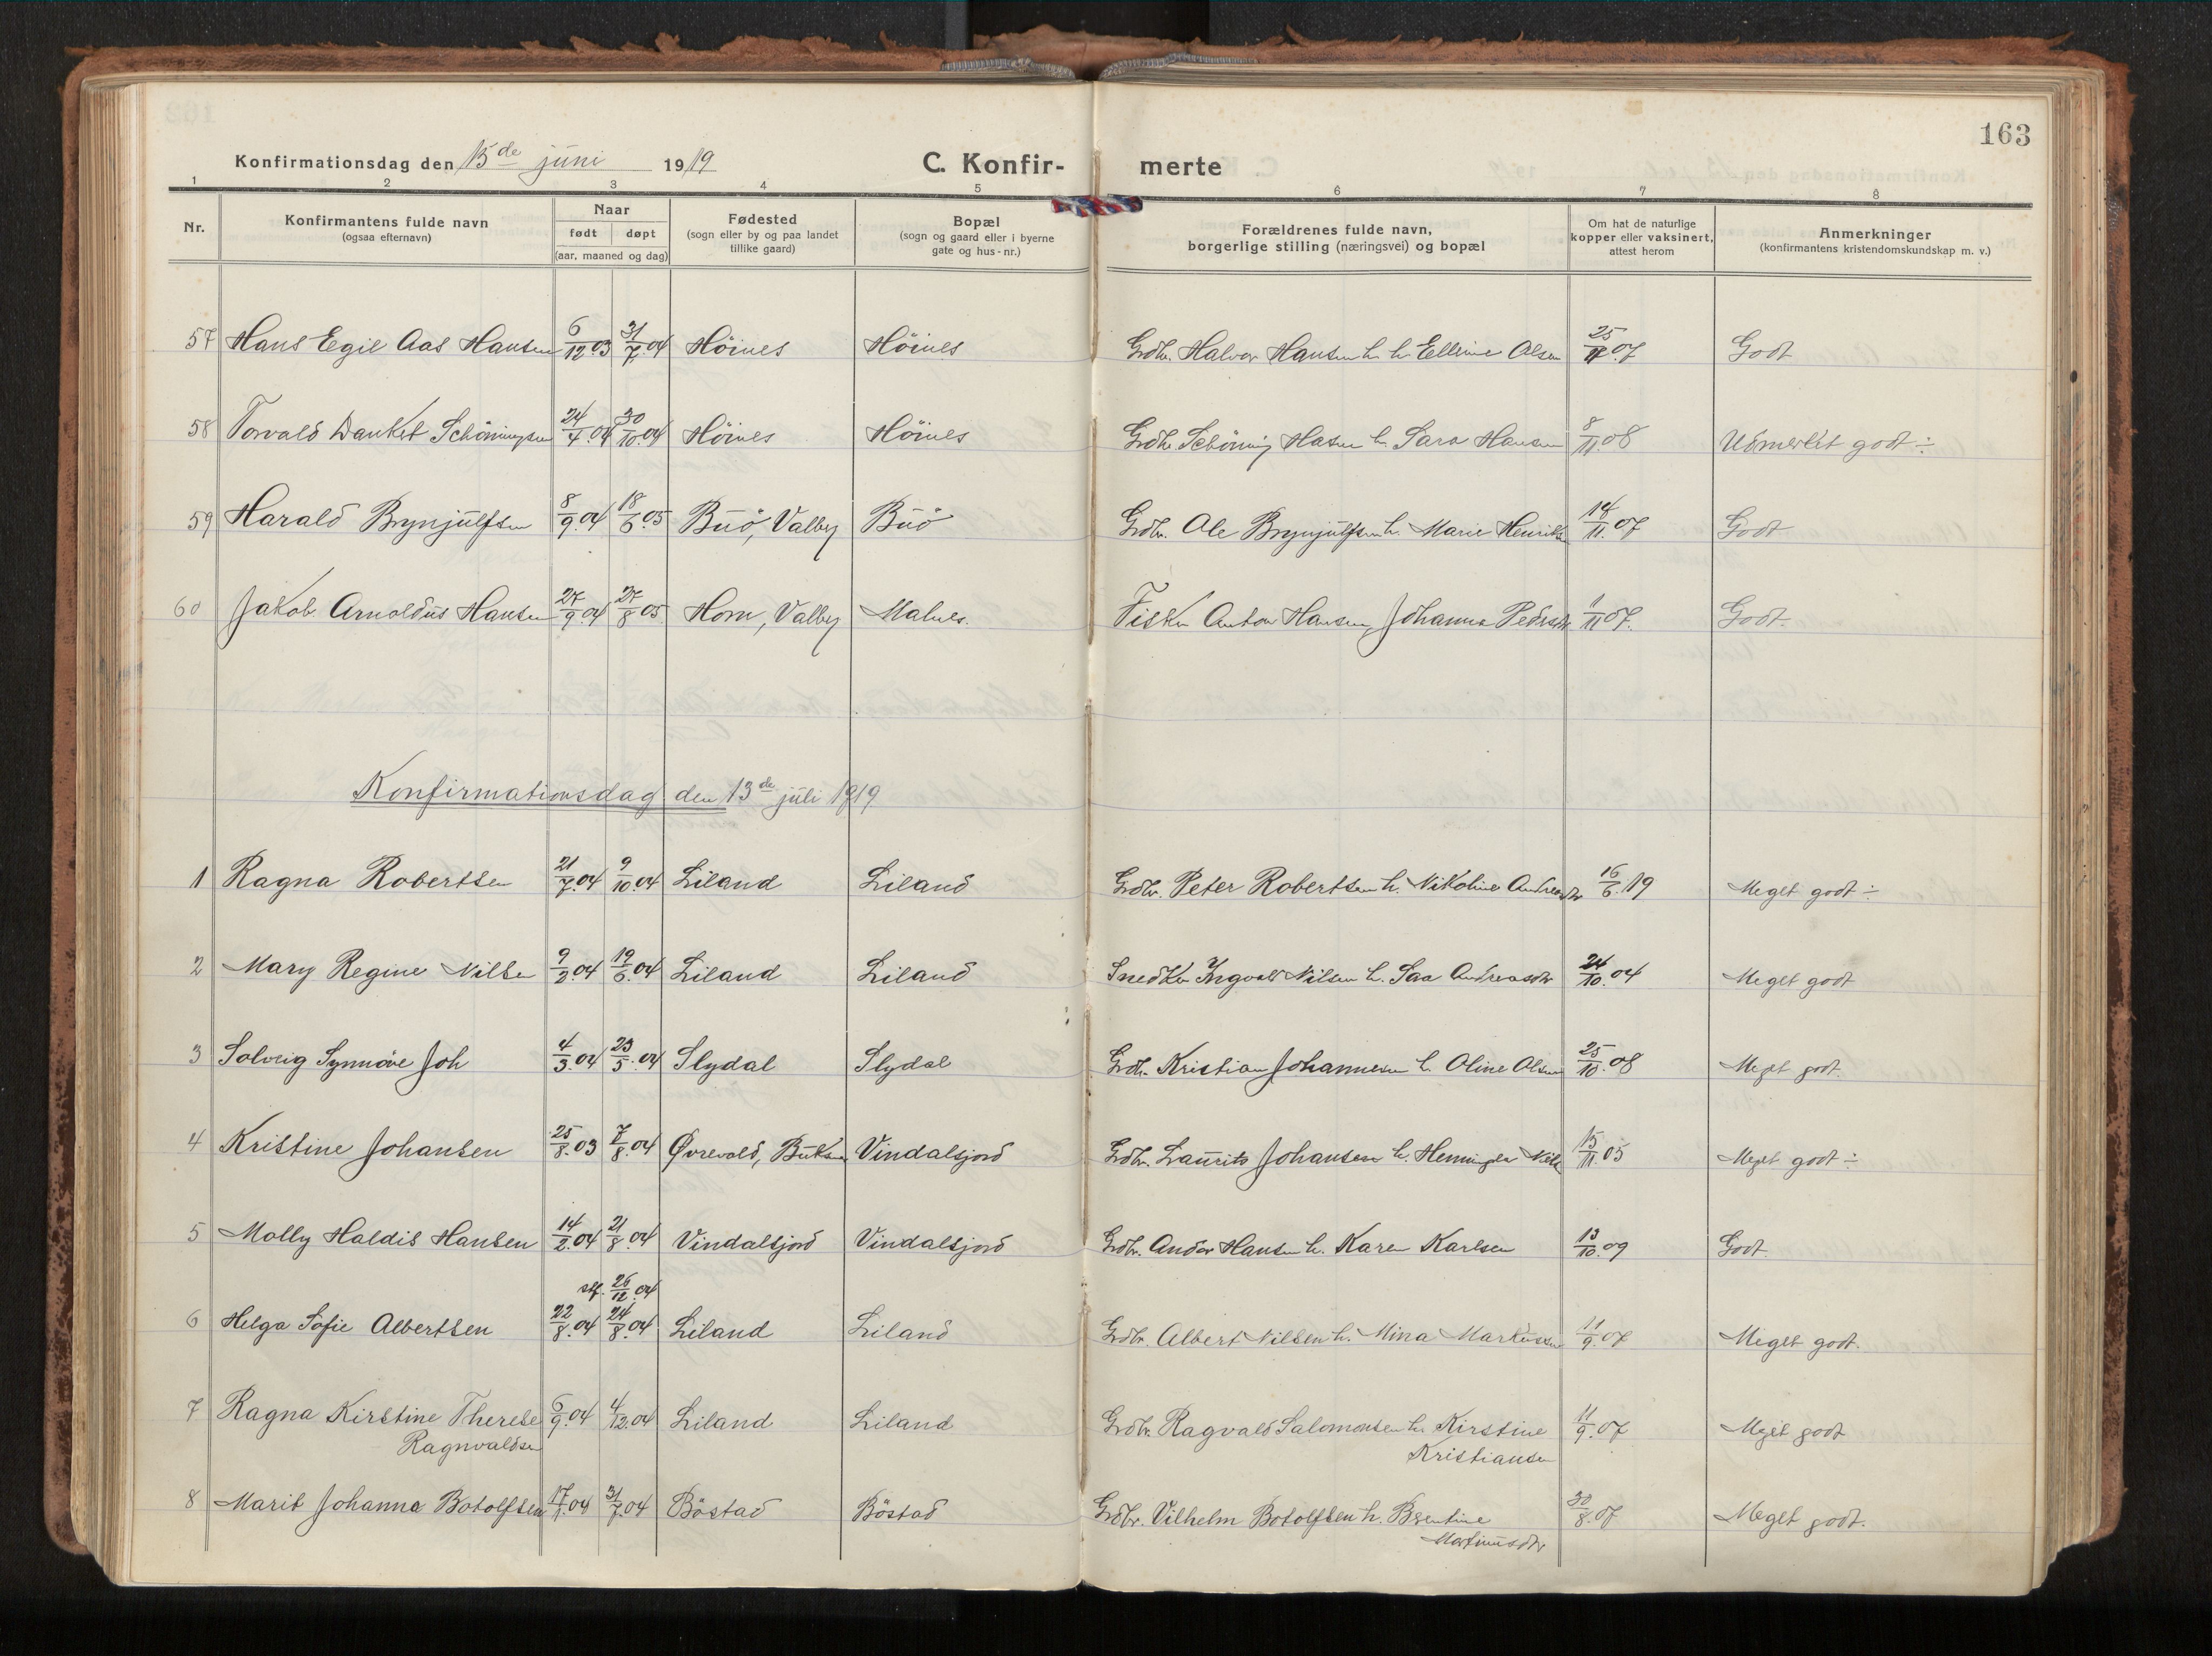 163
Konfirmationsdag den 15de juni 1919 C. Konfir- merte
1 2 3 4 5 6 7 8
Nr. Konfirmantens fulde navn (ogsaa efternavn) Naar født døpt (aar, maaned og dag) Fødested (sogn eller by og paa landet tillike gaard) Bopæl (sogn og gaard eller i byerne gate og hus-nr.) Forældrenes fulde navn, borgerlige stilling (næringsvei) og bopæl Om hat de naturlige kopper eller vaksinert, attest herom Anmerkninger (konfirmantens kristendomskundskap m. v.)
57 Hans Egil Aas Hansen 6/12.03 31/7.04 Höines Höines Grdbr. Halvor Hansen h. h. Ellerine Olsen 25/11.07 Godt
58 Torvald Danket Schöningsen 24/4.04 30/10.04 Höines Höines Grdbr. Schöning Hasen h. Sara Hansen 8/11.08 Udmerket godt ÷
59 Harald Brynjülfsen 8/9.04 18/6.05 Büö, Valberg Büö Grdbr. Ole Brynjülfsen h. Marie Henriks 14/11.07 Godt
60 Jakob Arnoldüs Hansen 27/9.04 27/8.05 Horn, Valberg Malnes. Fisker Anton Hansen, Johanna Pedersdtr 1/11.07. Godt.
Konfirmationsdag den 13de jüli 1919
1 Ragna Robertsen 21/7.04 9/10.04 Liland Liland Grdbr. Peter Robertsen h. Nikoline Andreasdtr 16/6.19 Meget godt ÷
2 Mary Regine Nilse 9/2.04 19/6.04 Liland Liland Snedker Ingvald Nilsen h. Sara Andreasdtr 24/10.04 Meget godt
3 Solveig Synnöve Joh 4/3.04 23/5.04 Slydal Slydal Grdbr. Kristian Johannesen h. Oline Olsen 25/10.08 Meget godt.
4 Kristine Johansen 25/8.03 7/8.04 Øvrevold, Büksn Vindalsjord Grdbr. Laurits Johansen h. Henningea Nils 15/11.05 Meget godt ÷
5 Molly Haldis Hansen 14/2.04 21/8.04 Vindalsjord Vindalsjord Grdbr. Andor Hansen h. Karen Karlsen 13/10.09 Godt.
stf. 26/12.04
6 Helga Sofie Albertsen 22/8.04 24/8.04 Liland Liland Grdbr. Albert Nilsen h. Mina Markussen 11/9.07 Meget godt.
7 Ragna Kirstine Therese 6/9.04 4/12.04 Liland Liland Grdbr. Ragvald Salomonsen h. Kirstine 11/9.07 Meget godt
Ragnvaldsen Kristiansen
8 Marit Johanna Botolfsen 17/1.04 31/7.04 Böstad Böstad Grdbr. Vilhelm Botolfsen h. Bentine 30/8.07 Meget godt.
Martinüsdtr